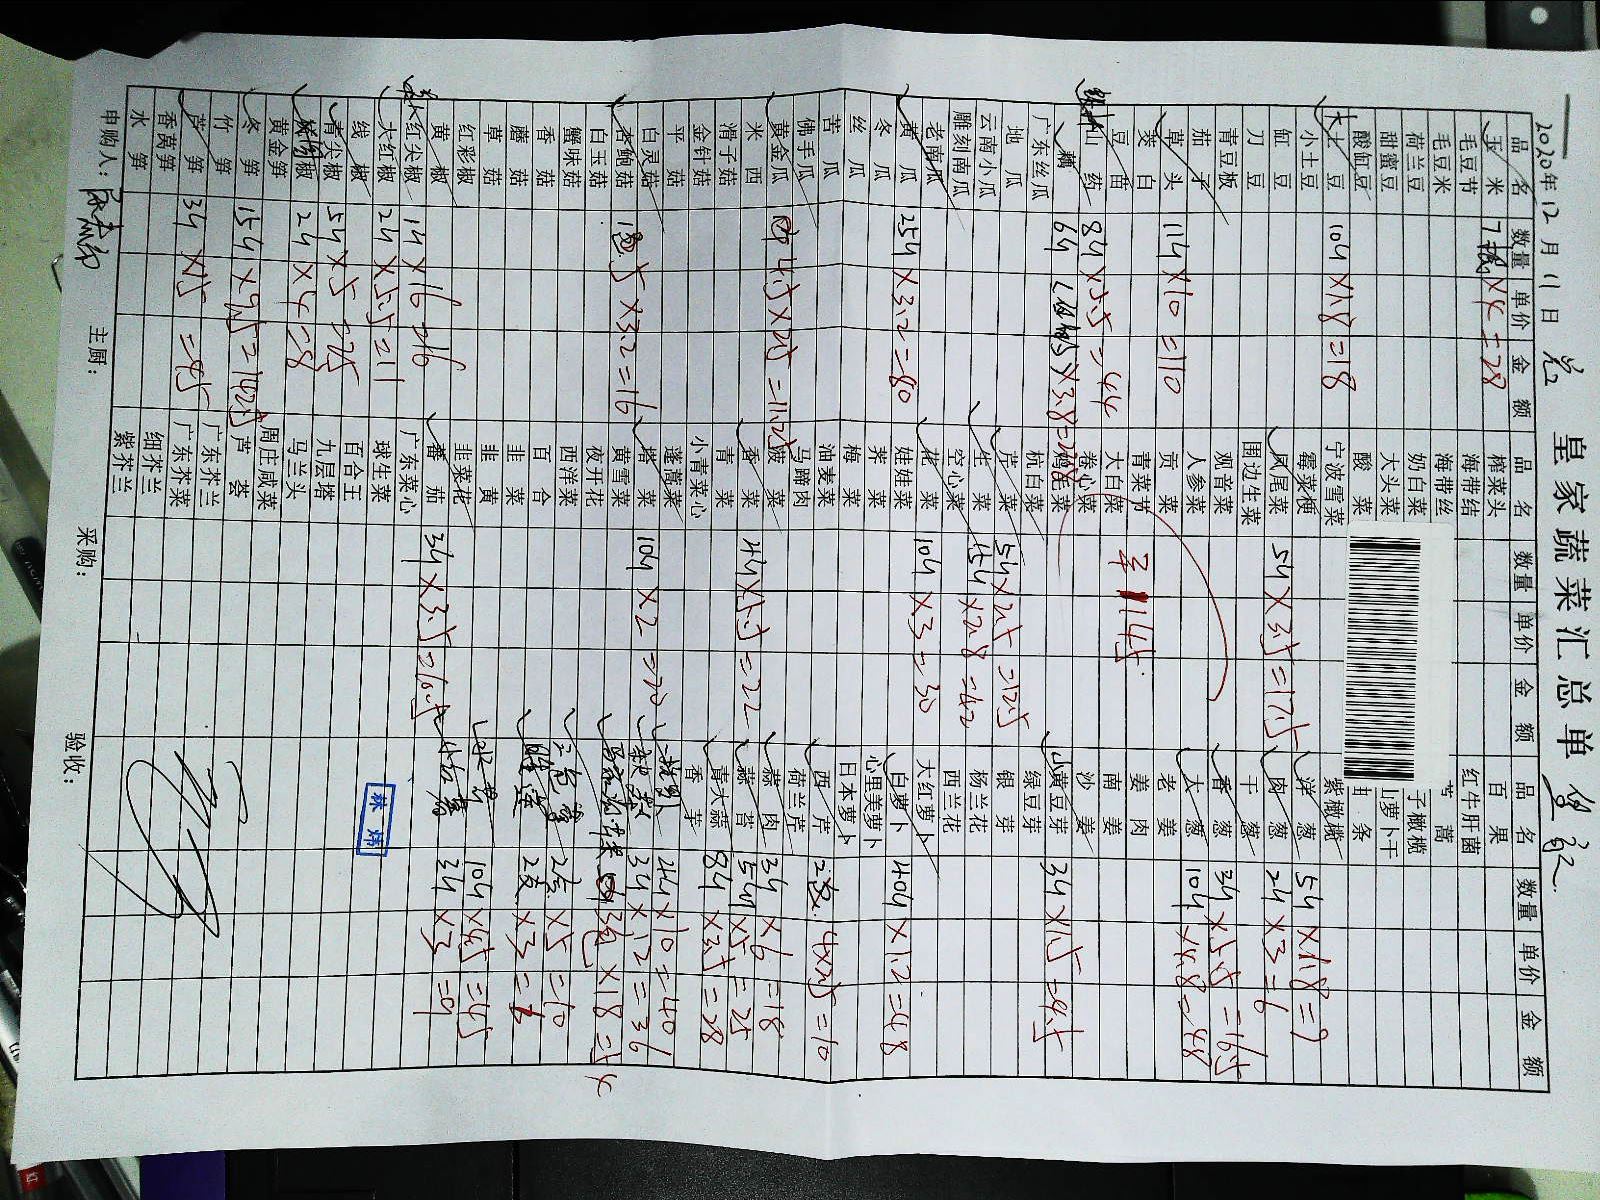 皇家蔬菜汇总单
2020年12月11日
品名 数量 单价 金额
玉米 ×4=28
毛豆节
毛豆米
荷兰豆
甜蜜豆
酸缸豆
大土豆 10斤×1.8=18
小土豆
缸豆
刀豆
青豆板
茄子
草头 11斤×10=110
茭白
豆苗
山药 8斤×5.5=44
藕 6斤 ×3.8=22.8
广东丝瓜
地瓜
云南小瓜
雕刻南瓜
老南瓜
黄瓜 25斤×3.2=80
冬瓜
丝瓜
苦瓜
佛手瓜
黄金瓜 4.5×2.5=11.25
米西
滑子菇
金针菇
平菇
白灵菇
杏鲍菇 5×3.2=16
白玉菇
蟹味菇
香菇
蘑菇
草菇
红彩椒
黄椒
红尖椒 1斤×16=16
大红椒 2斤×5.5=11
线椒
青尖椒 5斤×5=25
椒 2斤×4=8
黄金笋
冬笋 15斤×9.5=142.5
竹笋
芦笋 3斤×15=45
香莴笋
水笋
品名 数量 单价 金额
榨菜头
海带结
海带丝
奶白菜
大头菜
酸菜
宁波雪菜
霉菜梗
凤尾菜 5斤×3.5=17.5
围边生菜
观音菜
人参菜
贡菜
青菜节
大白菜
卷心菜
鸡毛菜
杭白菜
芹菜 5斤×2.5=12.5
生菜 15斤×2.8=42
空心菜
花菜 10斤×3=30
娃娃菜
荠菜
梅菜
油麦菜
马蹄肉
菠菜
香菜 4斤×5.5=22
青菜
小青菜心
蓬蒿菜
塔菜 10斤×2=20
黄雪菜
夜开花
西洋菜
百合
韭菜
韭黄
韭菜花
番茄 3斤×3.5=10.5
广东菜心
球生菜
百合王
九层塔
马兰头
周庄咸菜
芦荟
广东芥兰
广东芥菜
细芥兰
紫芥兰
品名 数量 单价 金额
百果
红牛肝菌
蒿
子橄榄
萝卜干
条
紫橄榄
洋葱 5斤×1.8=9
肉葱 2斤×3=6
干葱
香葱 3斤×5.5=16.5
大葱 10斤×4.8=48
老姜
姜肉
南姜
沙姜
绿豆芽
黄豆芽 3斤×1.5=4.5
银芽
杨兰花
西兰花
大红萝卜
白萝卜 40斤×1.2=48
心里美萝卜
日本萝卜
西芹 4×2.5=10
荷兰芹
蒜肉 3斤×6=18
蒜苔 5斤×5=25
青大蒜 8斤×3.5=28
香芋
4斤×10=40
3斤×12=36
3包×18=54
×5=10
×3=6
10斤×4.5=45
小红薯 3斤×3=9
林炜
申购人：
主厨：
采购：
验收：